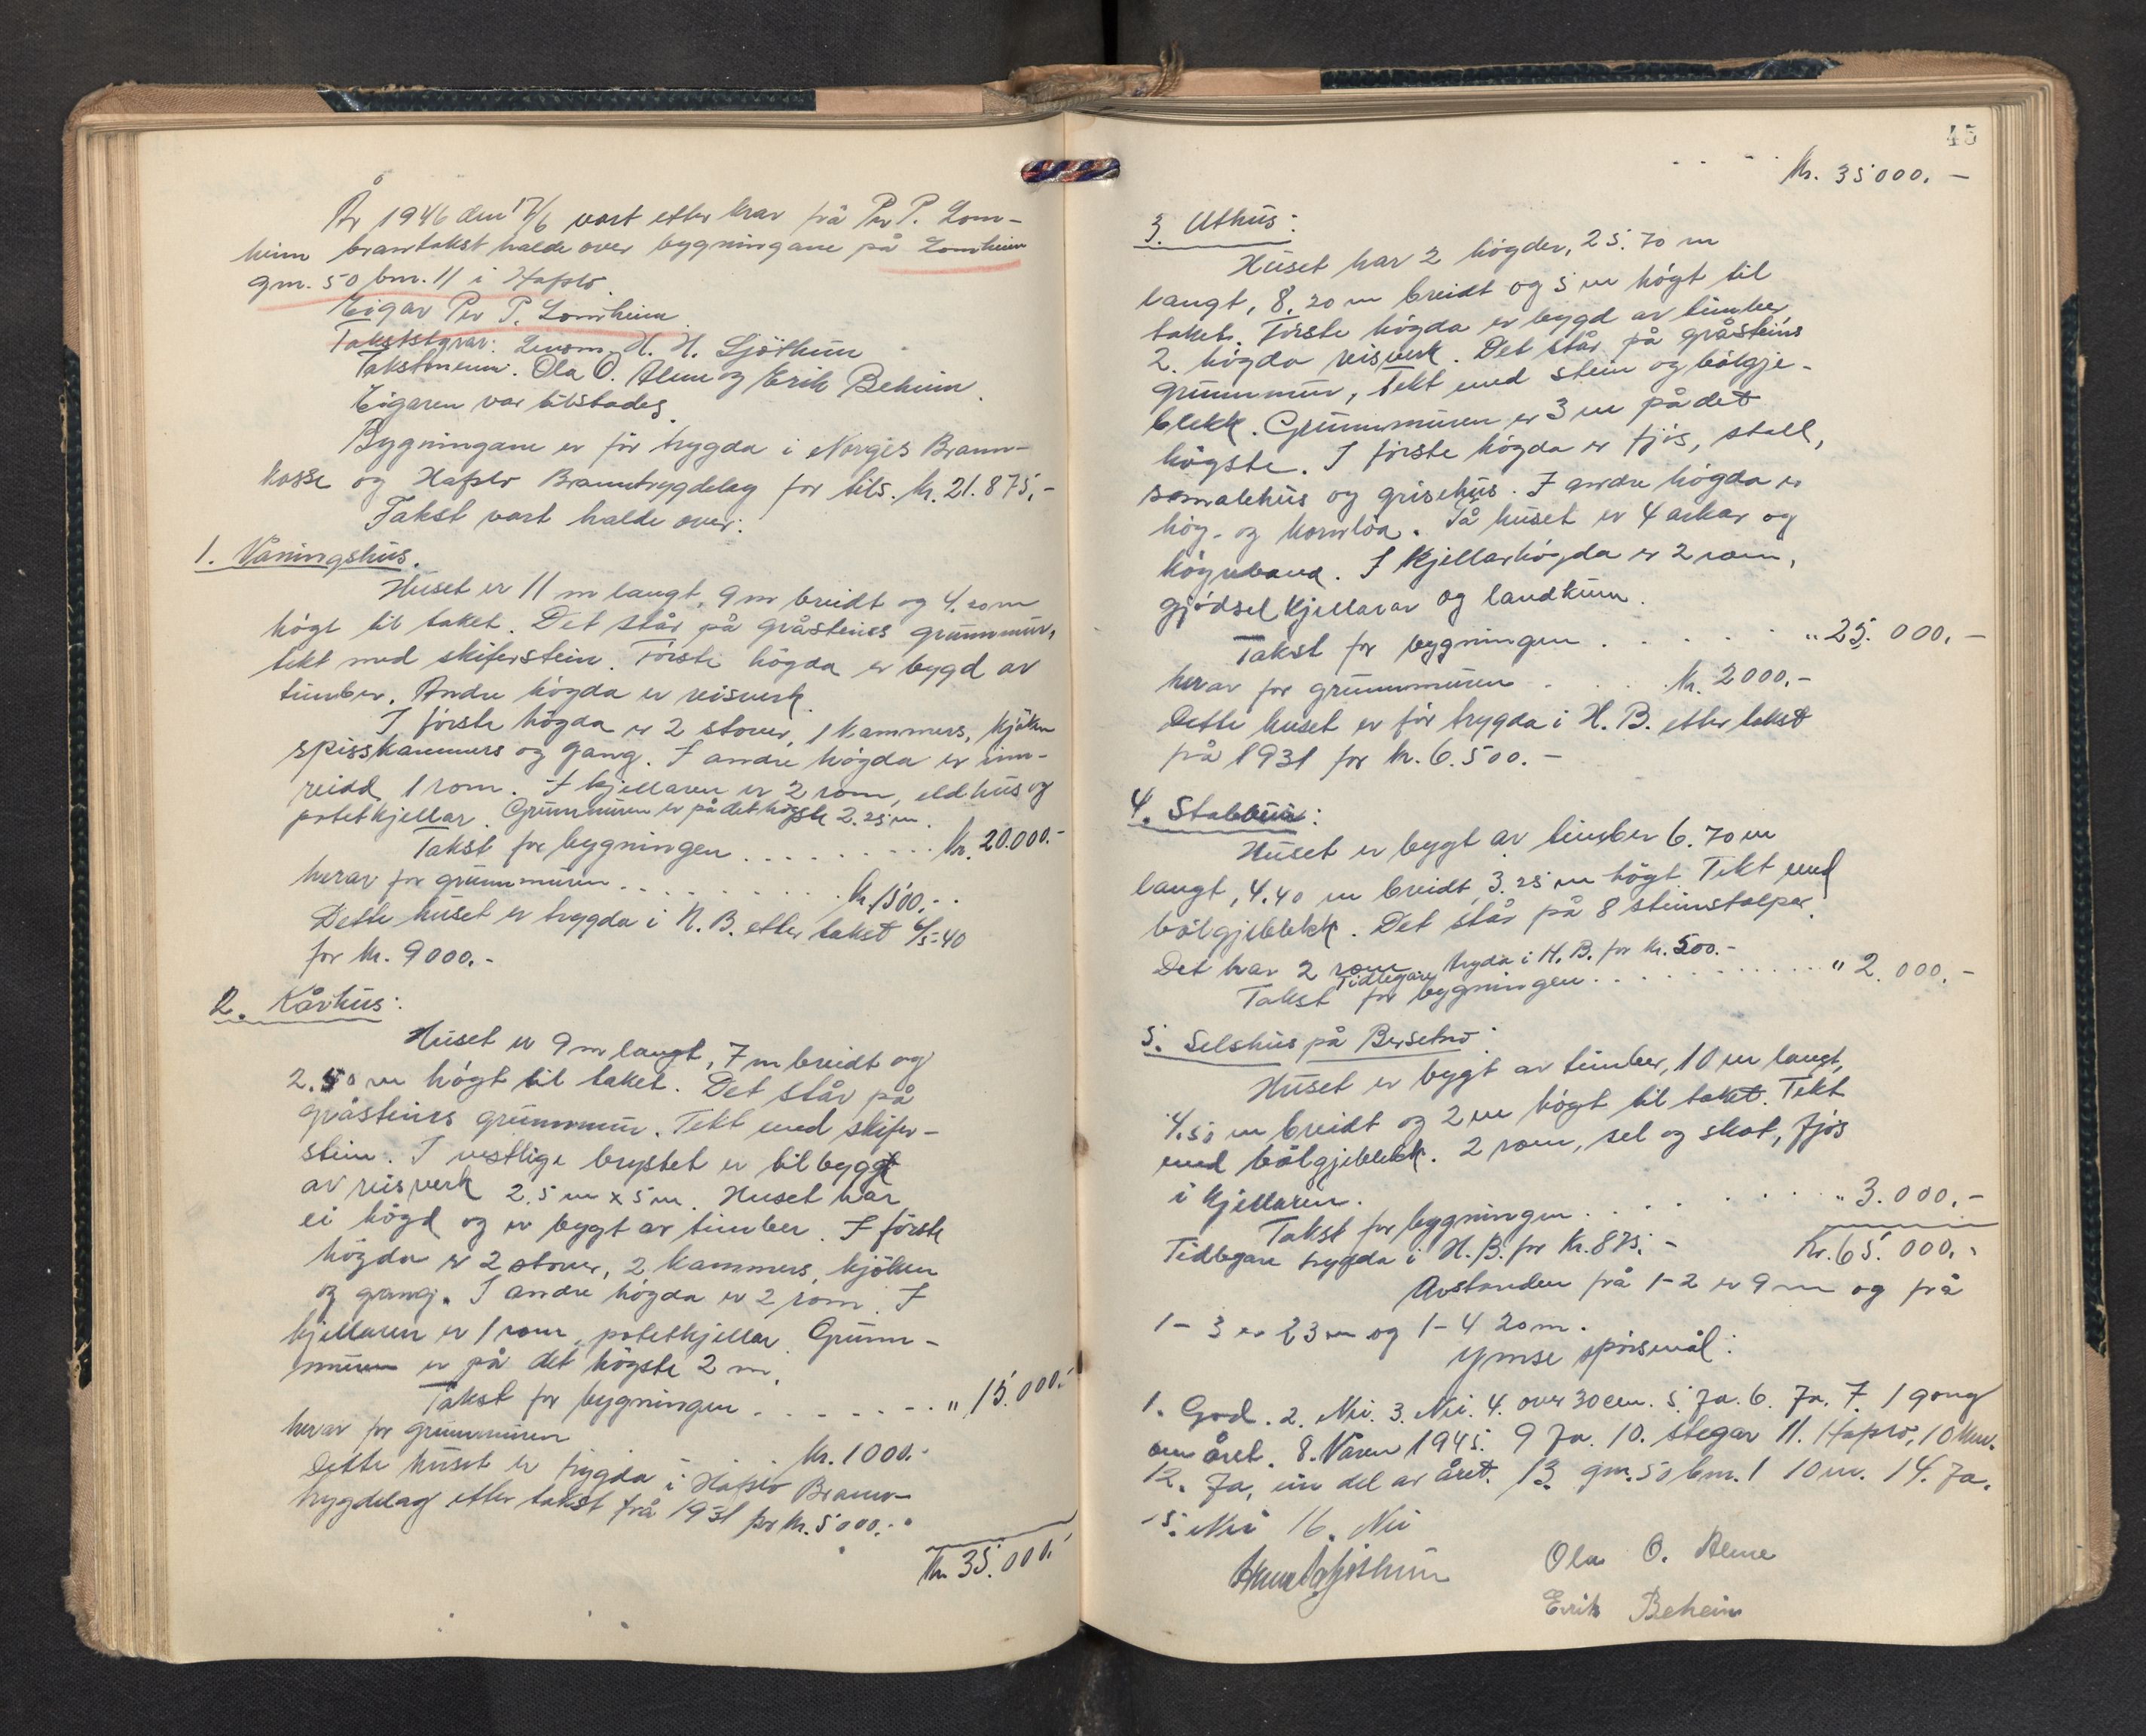 År 1946 den 17/6 vart etter krav frå Per P. Lom-
heim branntakst halde over bygningane på Lomheim
gnr. 50 bnr. 11 i Hafslo.
Eigar Per P. Lomheim
Takststyrar: Lensm. H. H. Sjöthun
Takstmenn. Ola O. Alme og Erik Beheim.
Eigaren var tilstades.
Bygningane er för trygda i Norges Brann-
kasse og Hafslo Branntrygdelag for tils. kr. 21.875,-
Takst vart halde over:
1. Våningshus.
Huset er 11 m langt, 9 m breidt og 4.20 m
högt til taket. Det står på gråsteins grunnmur,
tekt med skiferstein. Förste högda er bygd av
timber. Andre högda er reisverk.
I förste högda er 2 stover, 1 kammers, kjöken
spisskammers og gang. I andre högda er inn-
reidd 1 rom. I kjellaren er 2 rom, eldhus og
potetkjellar. Grunnmuren er på det högste 2.25 m.
Takst for bygningen ......... kr. 20.000.-
herav for grunnmuren .......... kr. 1500.-
Dette huset er trygda i N. B. etter takst 6/5-40
for kr. 9000.-
2. Kårhus:
Huset er 9 m langt, 7 m breidt og
2.50 m högt til taket. Det står på
gråsteins grunnmur. Tekt med skifer-
stein. I vestlige brystet er tilbygg
av reisverk 2.5 m x 5 m. Huset har
ei högd og er bygt av timber. I förste
högda er 2 stover, 2 kammers, kjöken
og gang. I andre högda er 2 rom. I
kjellaren er 1 rom, potetkjellar. Grunn-
muren er på det högste 2 m.
Takst for bygningen ....... " 15.000.-
herav for grunnmuren kr. 1000.-
Dette huset er trygda i Hafslo Brann-
trygdelag etter takst frå 1931 for kr. 5000.-
Kr. 35.000.-
45
Kr. 35000.-
3. Uthus:
Huset har 2 högder, 25.70 m
langt, 8.20 m breidt og 5 m högt til
taket. Förste högda er bygd av timber
2. högda reisverk. Det står på gråsteins
grunnmur, tekt med stein og bölgje-
blekk. Grunnmuren er 3 m på det
högste. I förste högda er fjös, stall,
somalehus og grisehus. I andre högda er
höy- og kornlöa. På huset er 4 arkar og
I kjellarhögda er 2 rom,
gjödselkjellarar og landkum.
Takst for bygningen . . . . . " 25.000.-
herav for grunnmuren . . . kr. 2000.-
Dette huset er för trygda i H. B. etter takst
frå 1931 for kr. 6.500.-
4. Stabbur:
Huset er bygt av timber 6.70 m
langt, 4.40 m breidt, 3.25 m högt. Tekt med
bölgjeblekk. Det står på 8 steinstolpar.
Det har 2 rom. Tidlegare trygda i H. B. for kr. 500.-
Takst for bygningen ............ " 2.000.-
5. Selshus på Bersetno:
Huset er bygt av timber, 10 m langt,
4.50 m breidt og 2 m högt til taket. Tekt
med bölgjeblekk. 2 rom, sel og skot, fjös
i kjellaren.
Takst for bygningen . . . . . . . " 3.000.-
Tidlegare trygda i H. B. for kr. 875.- Kr. 65.000.-
Avstanden frå 1-2 er 9 m og frå
1-3 er 23 m og 1-4 20 m.
Ymse spörsmål:
1. God. 2. Nei. 3. Nei. 4. over 30 cm. 5. Ja. 6. Ja. 7. 1 gong
om året. 8. Våren 1945. 9 Ja. 10. Stegar 11. Hafslo, 10 km.
12. Ja, ein del av året. 13. gnr. 50 bnr. 1 10 m. 14. Ja.
15. Nei 16. Nei
Ola O. Alme
Erik Beheim